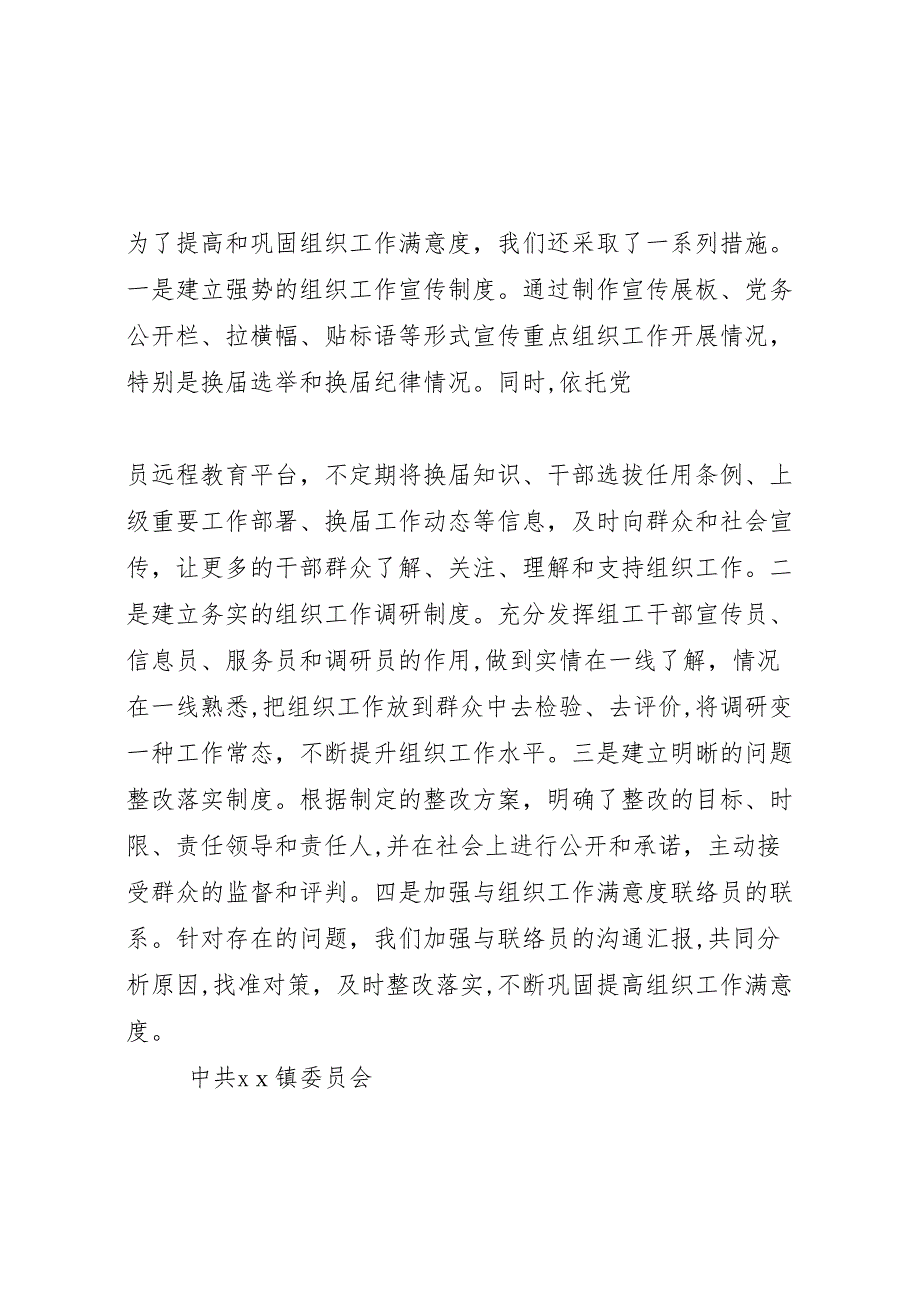 为了提高和巩固组织工作满意度，我们还采取了一系列措施。
一是建立强势的组织工作宣传制度。通过制作宣传展板、党务
公开栏、拉横幅、贴标语等形式宣传重点组织工作开展情况，
特别是换届选举和换届纪律情况。同时,依托党
员远程教育平台，不定期将换届知识、干部选拔任用条例、上
级重要工作部署、换届工作动态等信息，及时向群众和社会宣
传，让更多的干部群众了解、关注、理解和支持组织工作。二
是建立务实的组织工作调研制度。充分发挥组工干部宣传员、
信息员、服务员和调研员的作用,做到实情在一线了解，情况
在一线熟悉,把组织工作放到群众中去检验、去评价,将调研变
一种工作常态，不断提升组织工作水平。三是建立明晰的问题
整改落实制度。根据制定的整改方案，明确了整改的目标、时
限、责任领导和责任人,并在社会上进行公开和承诺，主动接
受群众的监督和评判。四是加强与组织工作满意度联络员的联
系。针对存在的问题，我们加强与联络员的沟通汇报,共同分
析原因,找准对策，及时整改落实,不断巩固提高组织工作满意
度。
中共xｘ镇委员会